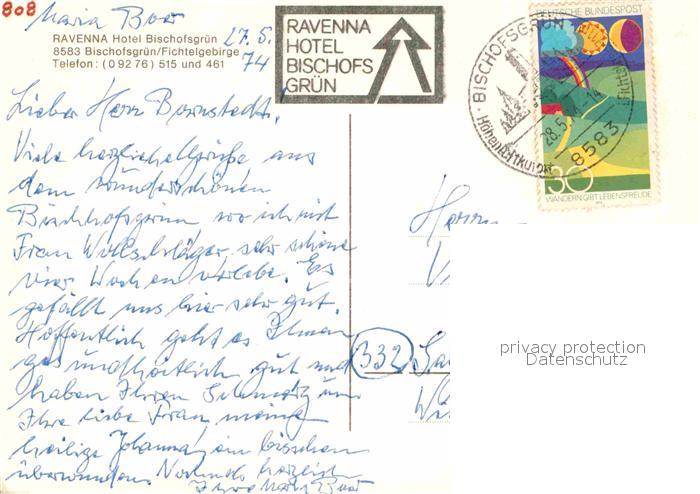 808
Maria Boor
27.5.
74
RAVENNA Hotel Bischofsgrün
8583 Bischofsgrün/Fichtelgebirge
Telefon: (0 92 76) 515 und 461
RAVENNA
HOTEL
BISCHOFS
GRÜN
BISCHOFSGRÜN
Höhenluftkurort
28.5.74-14
8583
DEUTSCHE BUNDESPOST
30
WANDERN GIBT LEBENSFREUDE
Lieber Herr Bornstedt!
Viele herzliche Grüße aus
dem wunderschönen
Bischhofsgrün wo ich mit
Frau Wollschläger sehr schöne
vier Wochen verlebe. Es
gefällt uns hier sehr gut.
Hoffentlich geht es Ihnen
gesundheitlich gut und
haben Ihren Schmerz um
Ihre liebe Frau, meine
heilige Johanna, ein bisschen
überwunden. Nochmals herzlich
Ihre Maria Boor
Herrn
332
privacy protection
Datenschutz